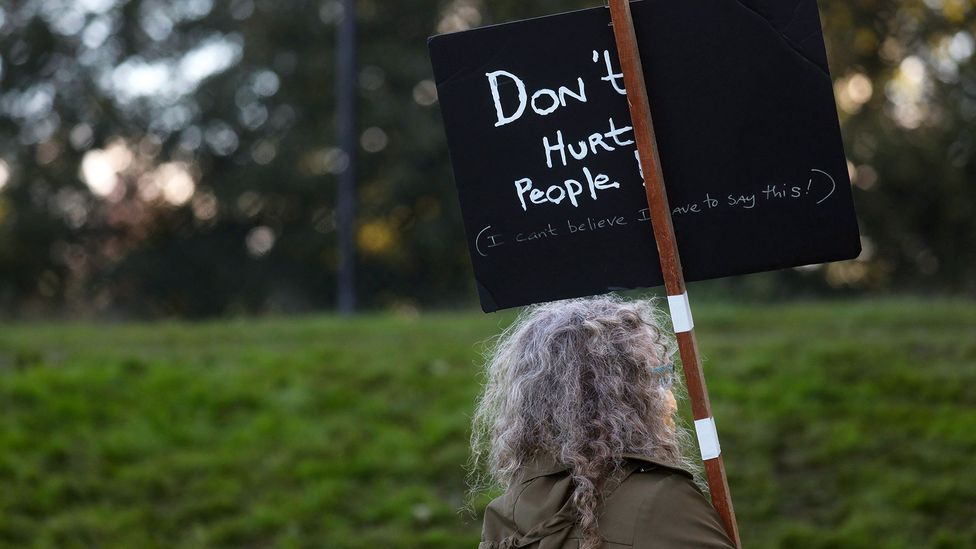 Don't
Hurt
People!
(I can't believe I have to say this!)